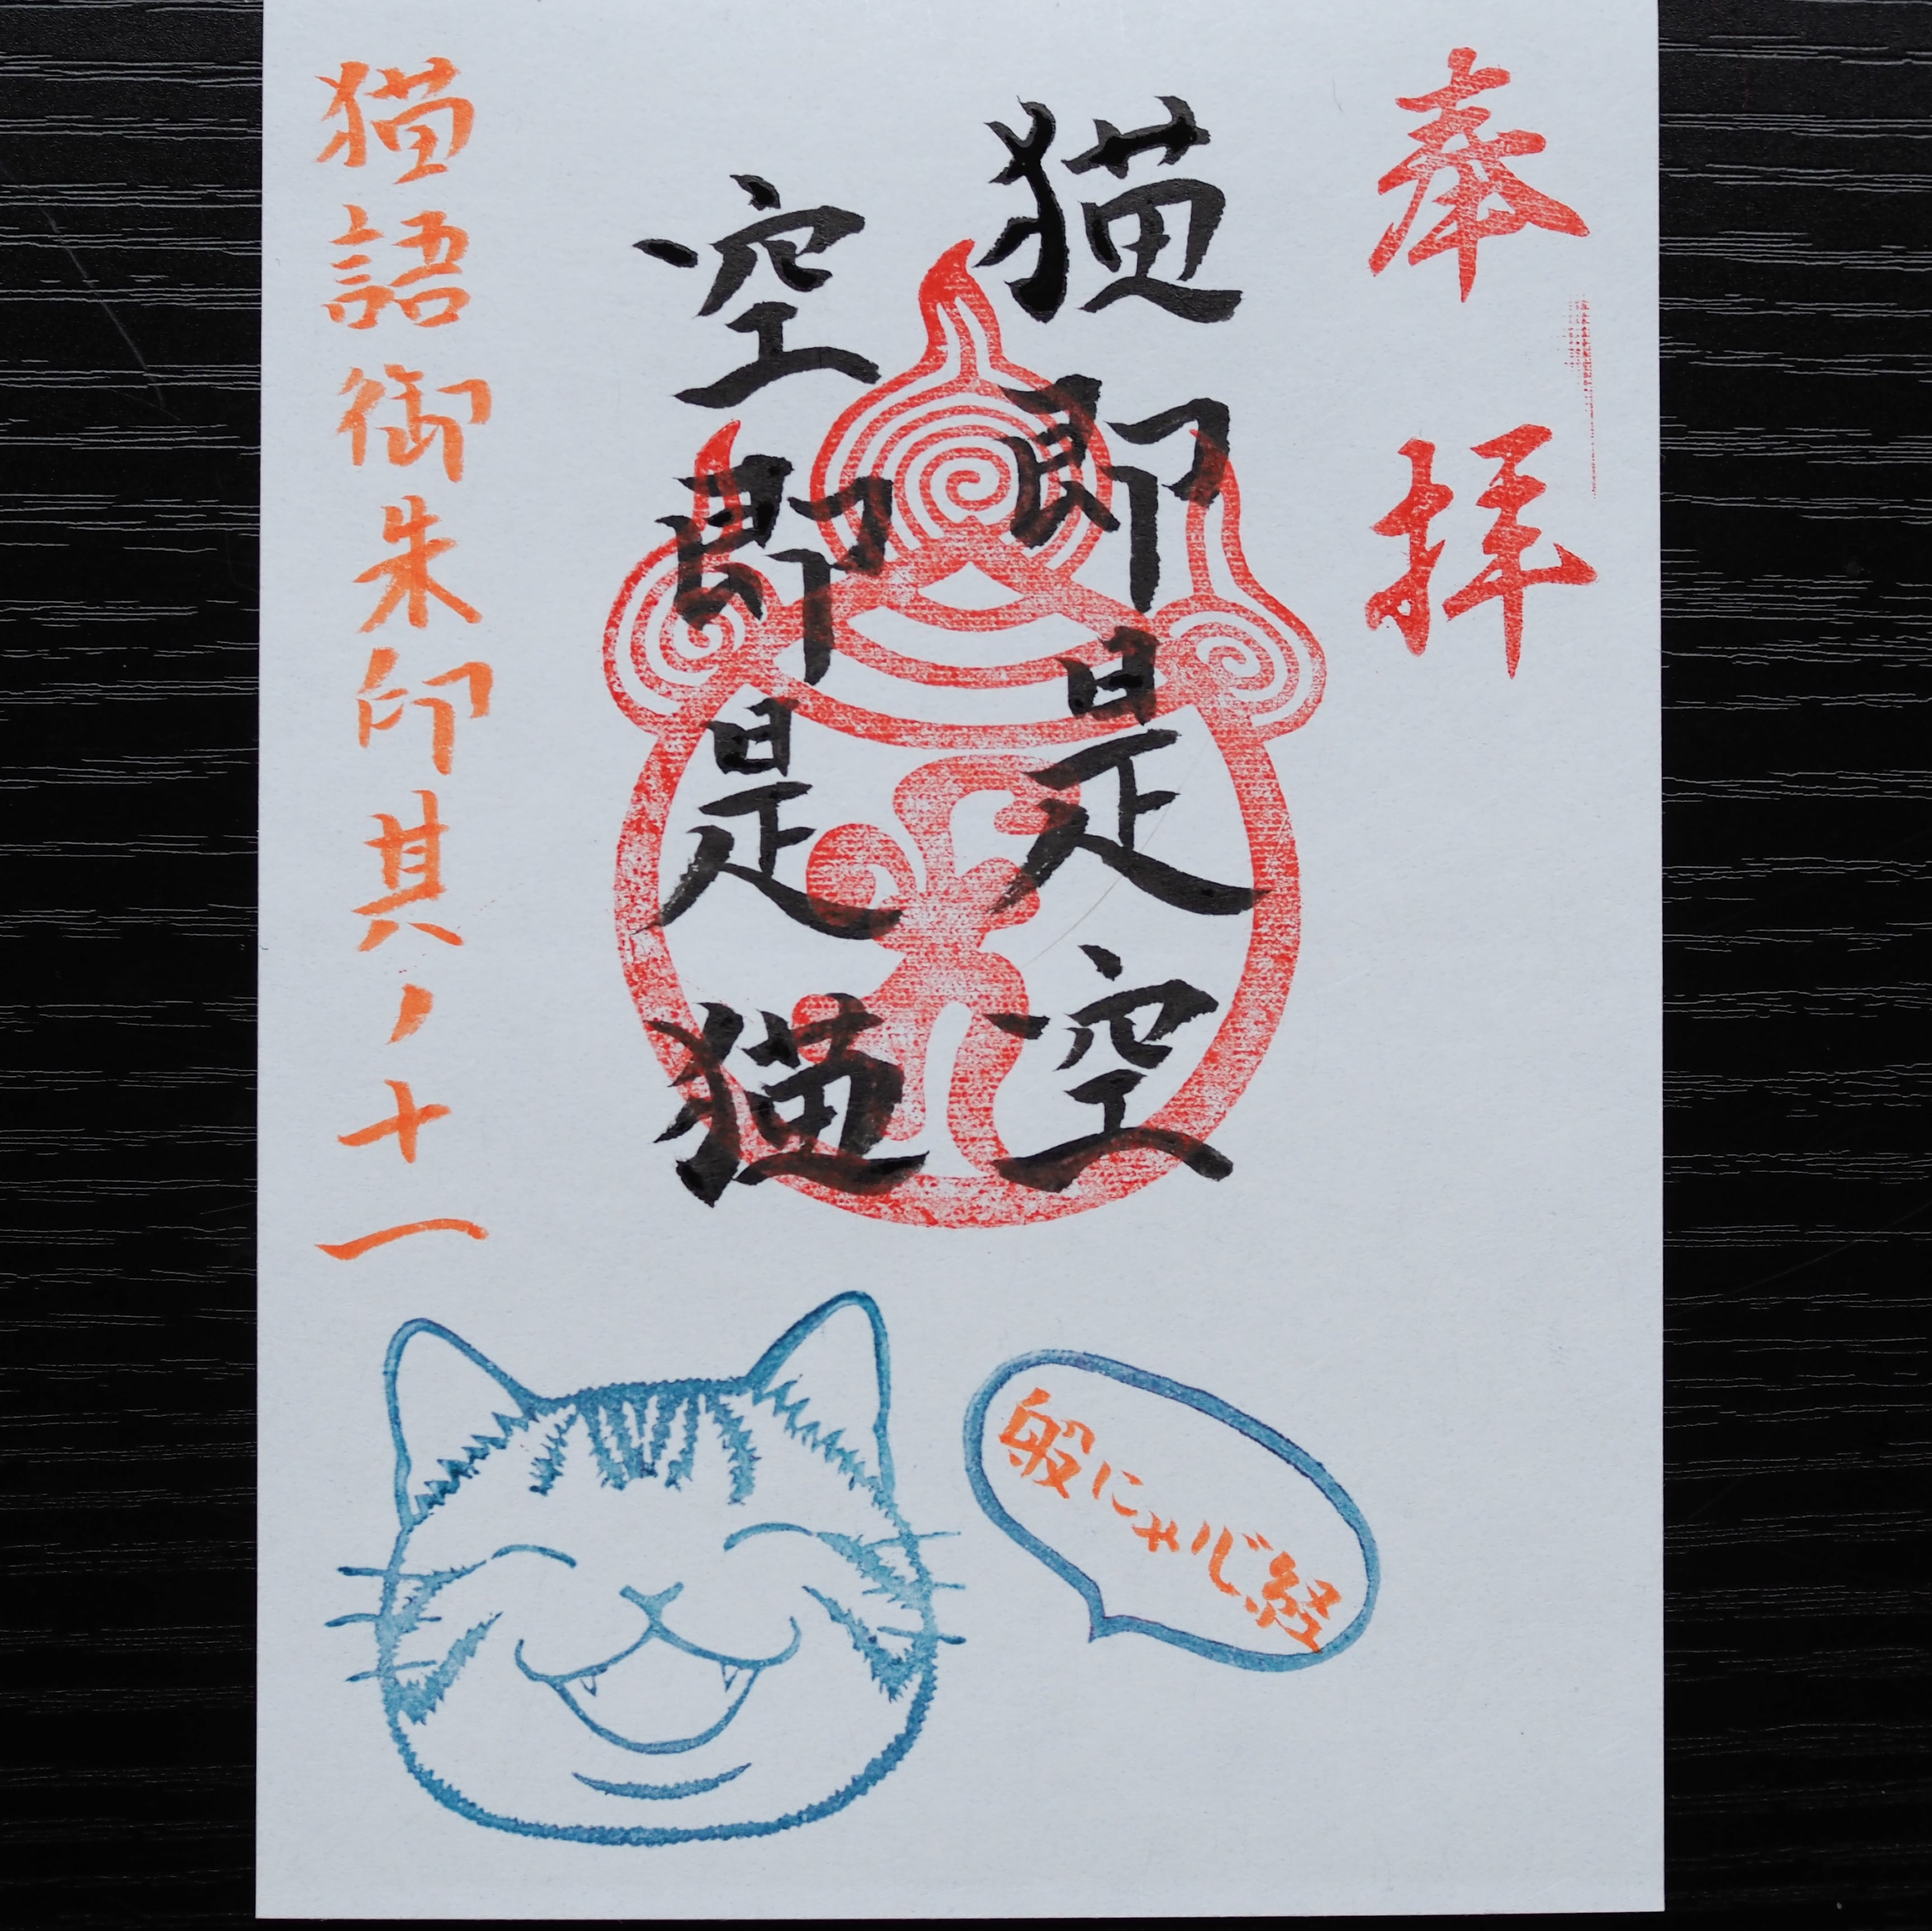 奉拝
猫即是空
空即是猫
猫語御朱印其ノ十一
般にゃじ経